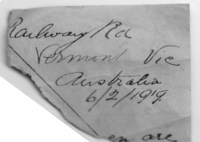 Railway Rd
Vermont Vic
Australia
6/2/1919
en are